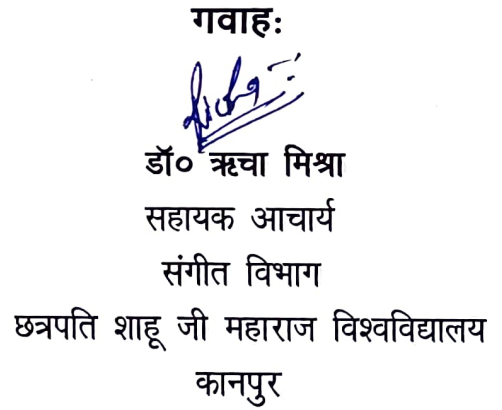 गवाहः
Richa
डॉ० ऋचा मिश्रा
सहायक आचार्य
संगीत विभाग
छत्रपति शाहू जी महाराज विश्वविद्यालय
कानपुर